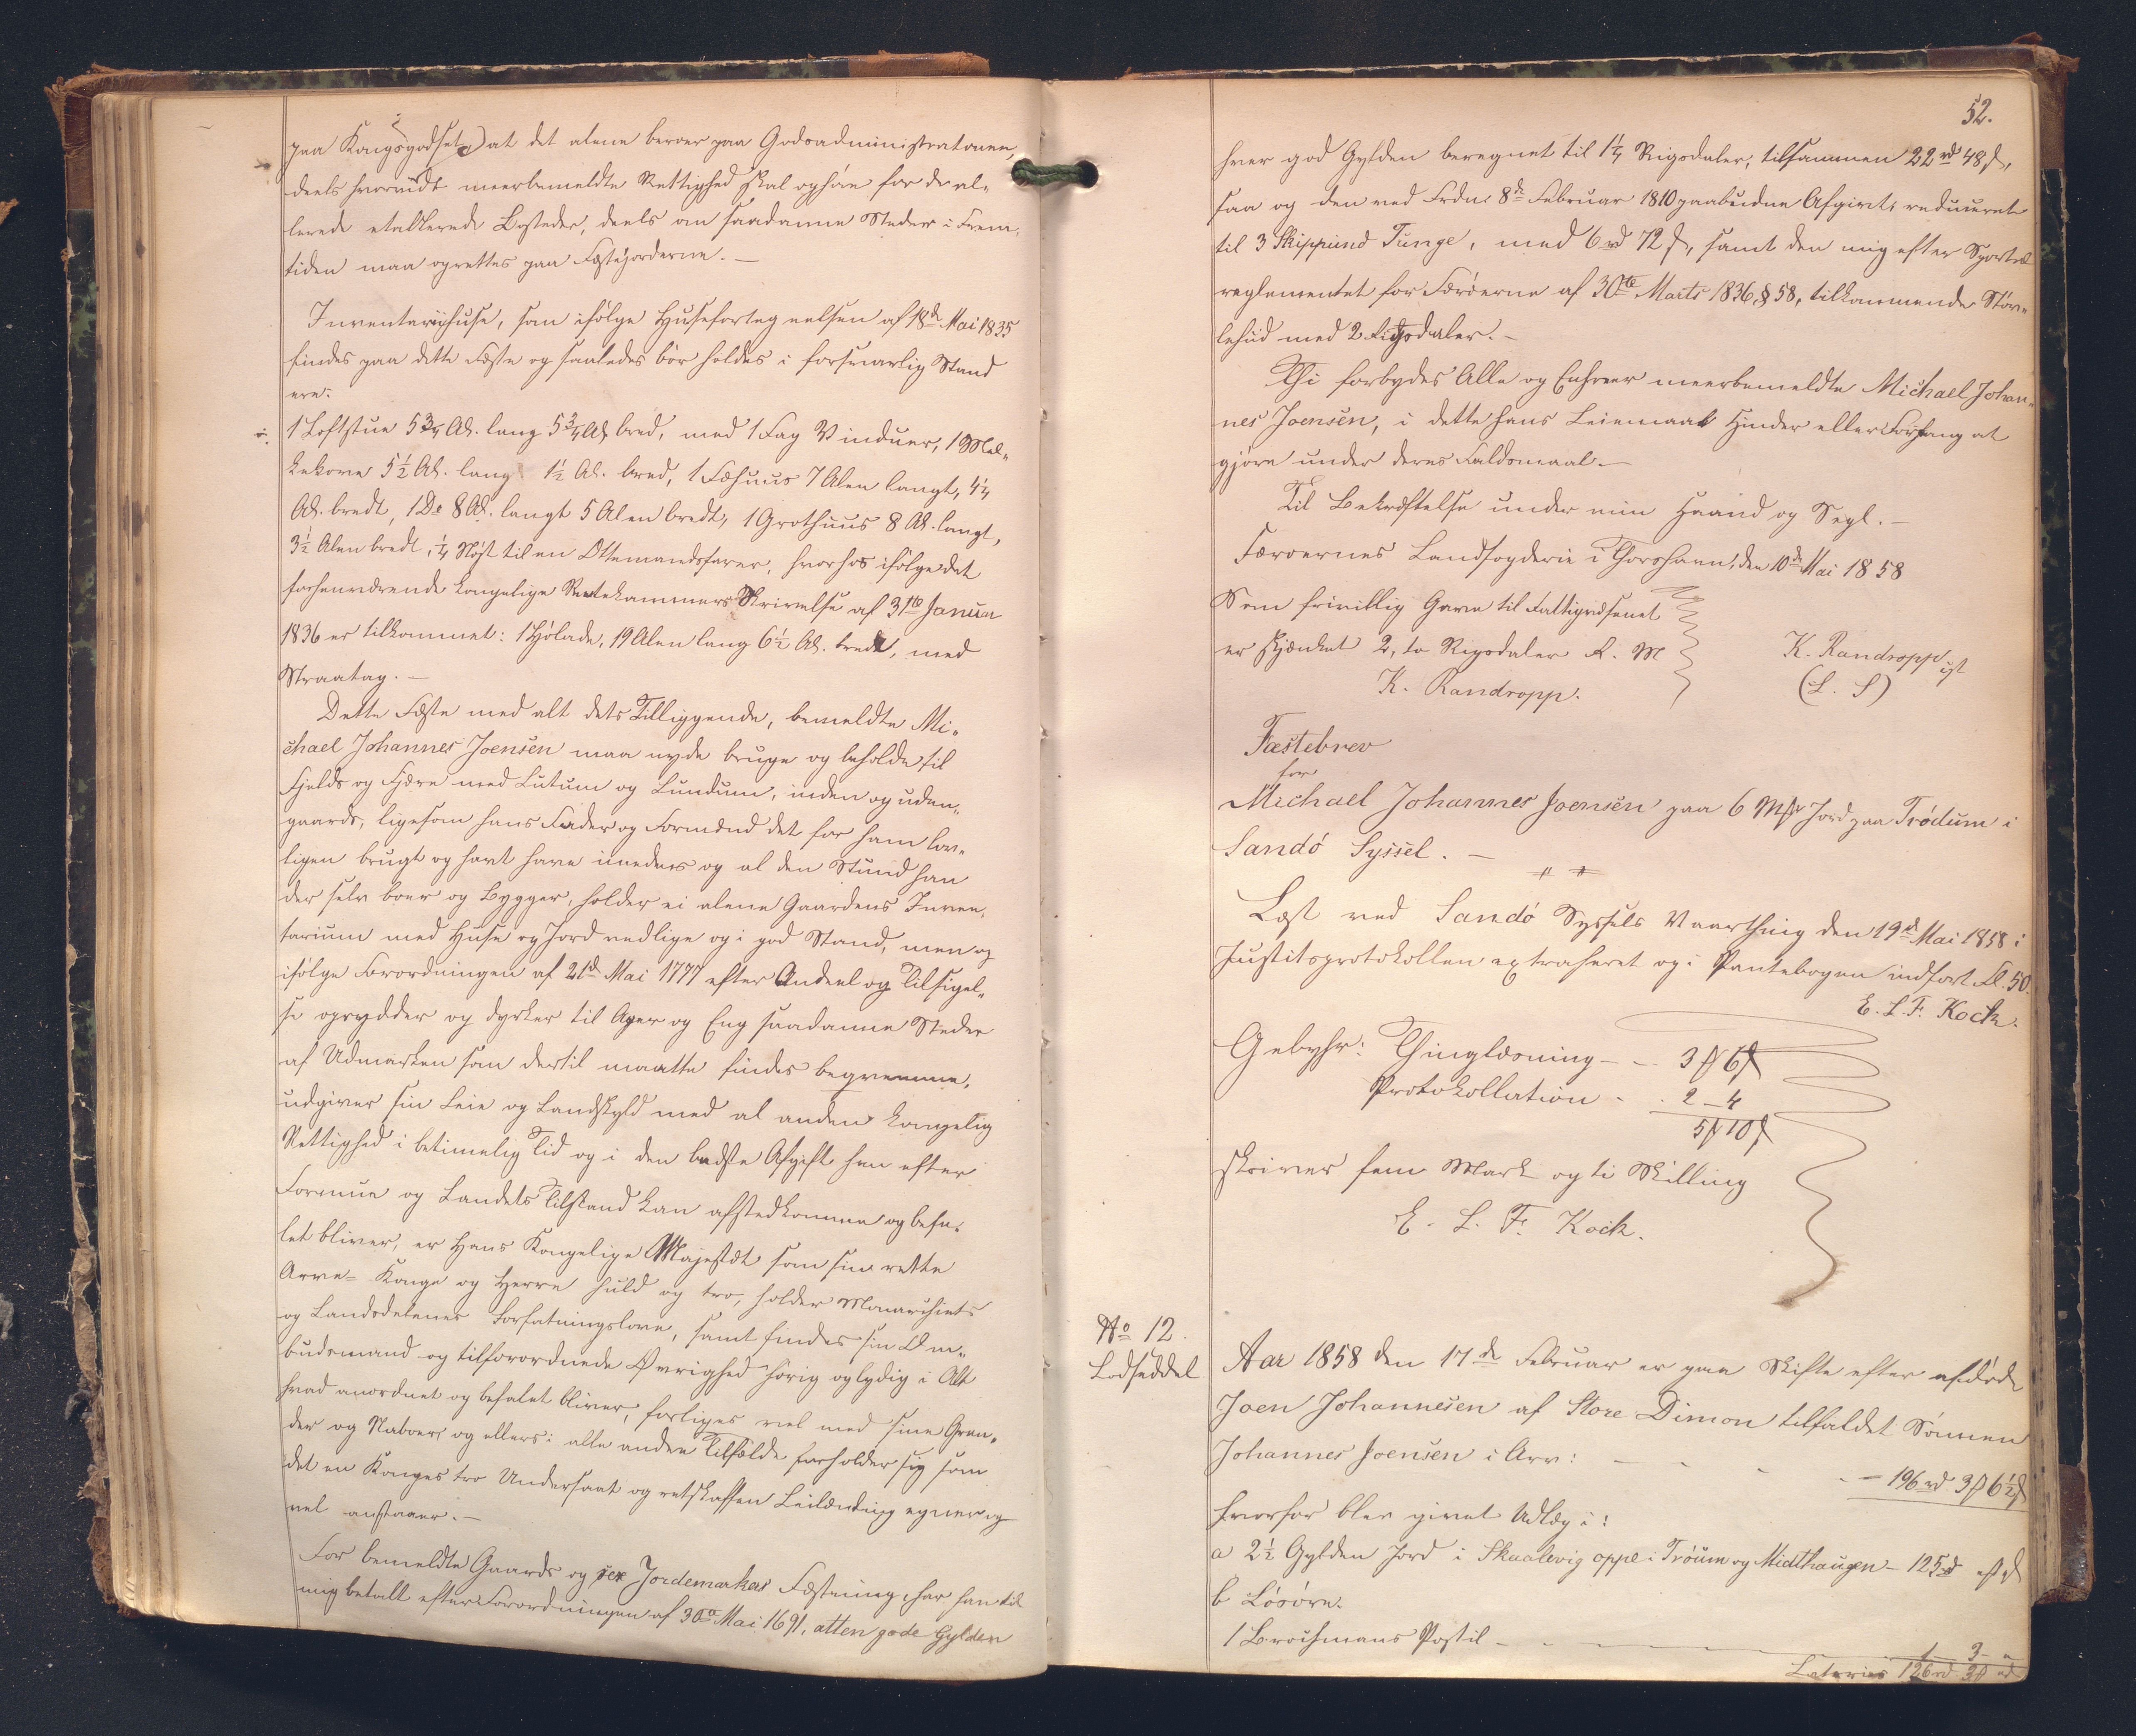 paa Kongsgodset, at det alene beroer paa Godsadministrationen,
deels hvorvidt meerbemeldte Rettighed skal ophøre for de al-
lerede etablerede Bosteder, deels om saadanne Steder i Frem-
tiden maa oprettes paa Fæstejorderne. —
Inventariihuse, som ifølge Husefortegnelsen af 18de Mai 1835
findes paa dette Fæste og saaledes bør holdes i forsvarlig Stand
ere:
1 Loftstue 5 3/4 Al. lang 5 3/4 Al. bred, med 1 Fag Vinduer, 1 Mel-
kekove 5 1/2 Al. lang 1 1/2 Al. bred, 1 Fæhuus 7 Alen langt, 4 1/4
Al. bredt, 1 Do 8 Al. langt 5 Alen bredt, 1 Grothuus 8 Al. langt,
3 1/2 Alen bredt, 1/4 Nøst til en Ottemandsfarer, hvorhos ifølge det
forhenværende kongelige Rentekammers Skrivelse af 31te Januar
1836 er tilkommet: 1 Hjølade, 19 Alen lang 6 1/2 Al. bredt, med
Straatag. —
Dette Fæste med alt dets Tilliggende, bemeldte Mi-
chael Johannes Joensen maa nyde bruge og beholde til
Fjelds og Fjære med Lutum og Lundum, inden og uden-
gaards, ligesom hans Fader og Formænd det for ham lov-
ligen brugt og havt have imedens og al den Stund han
der selv boer og bygger, holder ei alene Gaardens Inven-
tarium med Huse og Jord vedlige og i god Stand, men og
ifølge Forordningen af 21de Mai 1777 efter Andeel og Tilsigel-
se oprydder og dyrker til Ager og Eng saadanne Steder
af Udmarken som dertil maatte findes beqvemme,
udgiver sin Leie og Landskyld med al anden kongelig
Rettighed i betimelig Tid og i den bedste Afgift han efter
Formue og Landets Tilstand kan afstedkomme og befa-
let bliver, er Hans Kongelige Majestæt som sin rette
Arve- Konge og Herre huld og tro, holder Monarchiets
og Landsdelenes Forfatningslove, samt findes sin Om-
budsmand og tilforordnede Øvrighed hørig og lydig i Alt
hvad anordnet og befalet bliver, forliges vel med sine Gran-
der og Naboer og ellers i alle andre Tilfælde forholder sig som
det en Konges tro Undersaat og retskaffen Leilænding egner og
vel anstaaer. —
For bemeldte Gaards og sex Jordemarkers Fæstning, har han til
mig betalt efter Forordningen af 30te Mai 1691, atten gode Gylden
52.
hver god Gylden beregnet til 1 1/4 Rigsdaler, tilsammen 22 rd 48 s,
saa og den ved Frdn. 8de Februar 1810 paabudne Afgivt, reduceret
til 3 Skippund Tunge, med 6 rd 72 s, samt den mig efter Sportel
reglementet for Færøerne af 30te Marts 1836 § 58, tilkommende Støv-
lehud med 2 Rigsdaler. —
Thi forbydes Alle og Enhver meerbemeldte Michael Johan-
nes Joensen, i dette hans Leiemaal Hinder eller Forfang at
gjøre under deres Faldsmaal. —
Til Bekræftelse under min Haand og Segl. —
Færøernes Landfogderie i Thorshavn, den 10de Mai 1858
Som frivillig Gave til Fattigvæsenet
er skjænket 2, to Rigsdaler R. M
K. Randropp.
K. Randropp cst
(L. S)
Fæstebrev
for
Michael Johannes Joensen paa 6 Mk Jord paa Trødum i
Sandø Syssel. —
Læst ved Sandø Syssels Vaarthing den 19de Mai 1858 i
Justitsprotokollen extraheret og i Pantebogen indført Fol. 50.
E. L. F. Kock.
Gebyhr: Thinglæsning — - 3 # 6 s
Protokollation - - 2 — 4
5 # 10 s
skriver fem Mark og ti Skilling
E. L. F. Kock.
No 12.
Lodseddel
Aar 1858 den 17de Februar er paa Skifte efter afdøde
Joen Johannesen af Store Dimon tilfaldet Sønnen
Johannes Joensen i Arv: — - - - — 196 rd 3 # 6 1/2 s
hvorfor blev givet Udlæg i:
a 2 1/2 Gylden Jord i Skaalevig oppe i Trøum og Midthaugen — 125 rd " # " s
b Løsøre.
1 Brochmans Postil — - - — 1 3 "
Lateris 126 rd 3 # " s